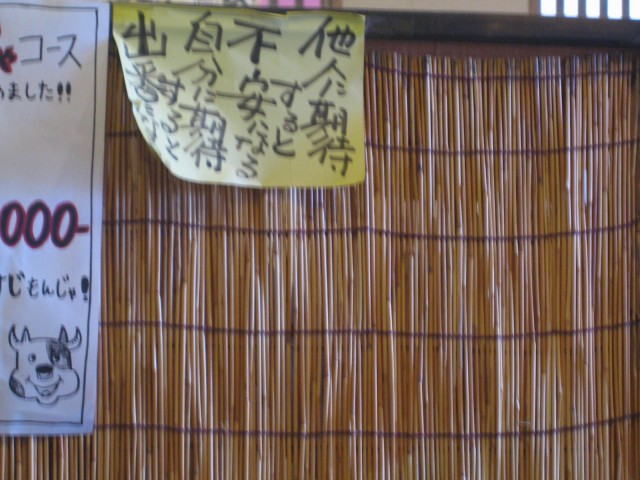 コース
ました!!
000-
じもんじゃ!
他人に期待
すると
不安になる
自分に期待
すると
出番だ